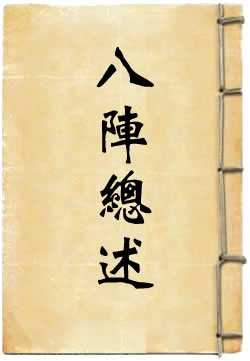 八陣總述